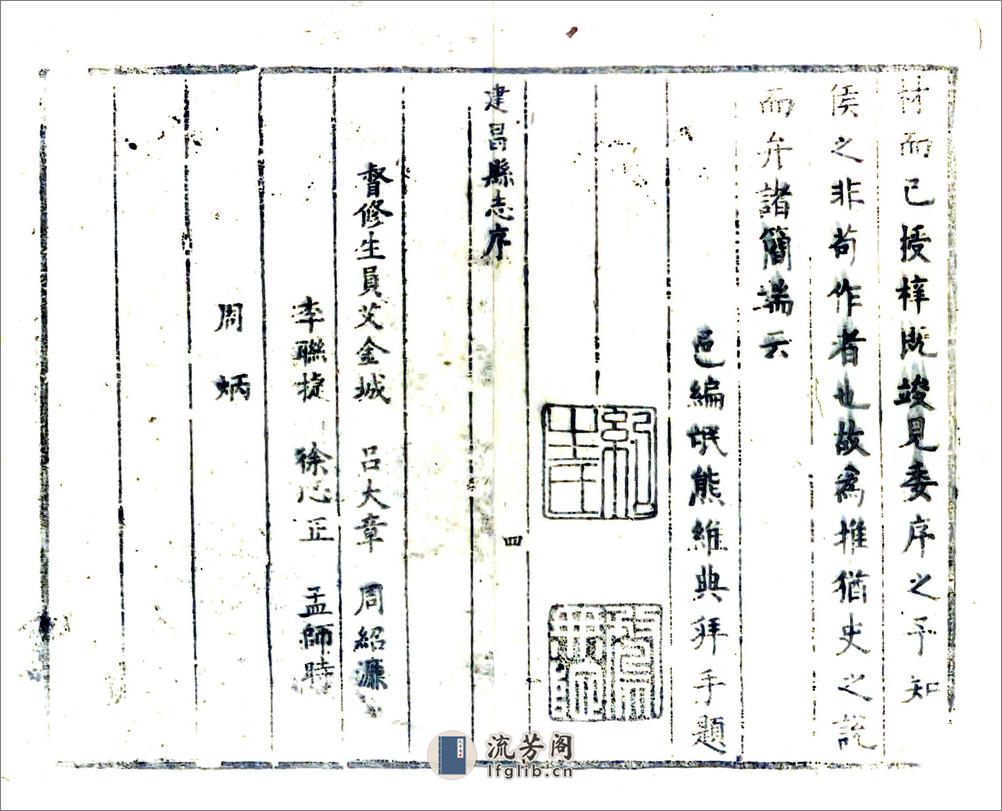 材而已授梓既竣見委序之予知
侯之非苟作者也故為推猶史之說
而弁諸簡端云
邑編氓熊維典拜手題
建昌縣志序
四
督修生員艾金城 呂大章 周紹濂
李聯捷 徐心正 孟師時
周炳
流芳阁
lfglib.cn